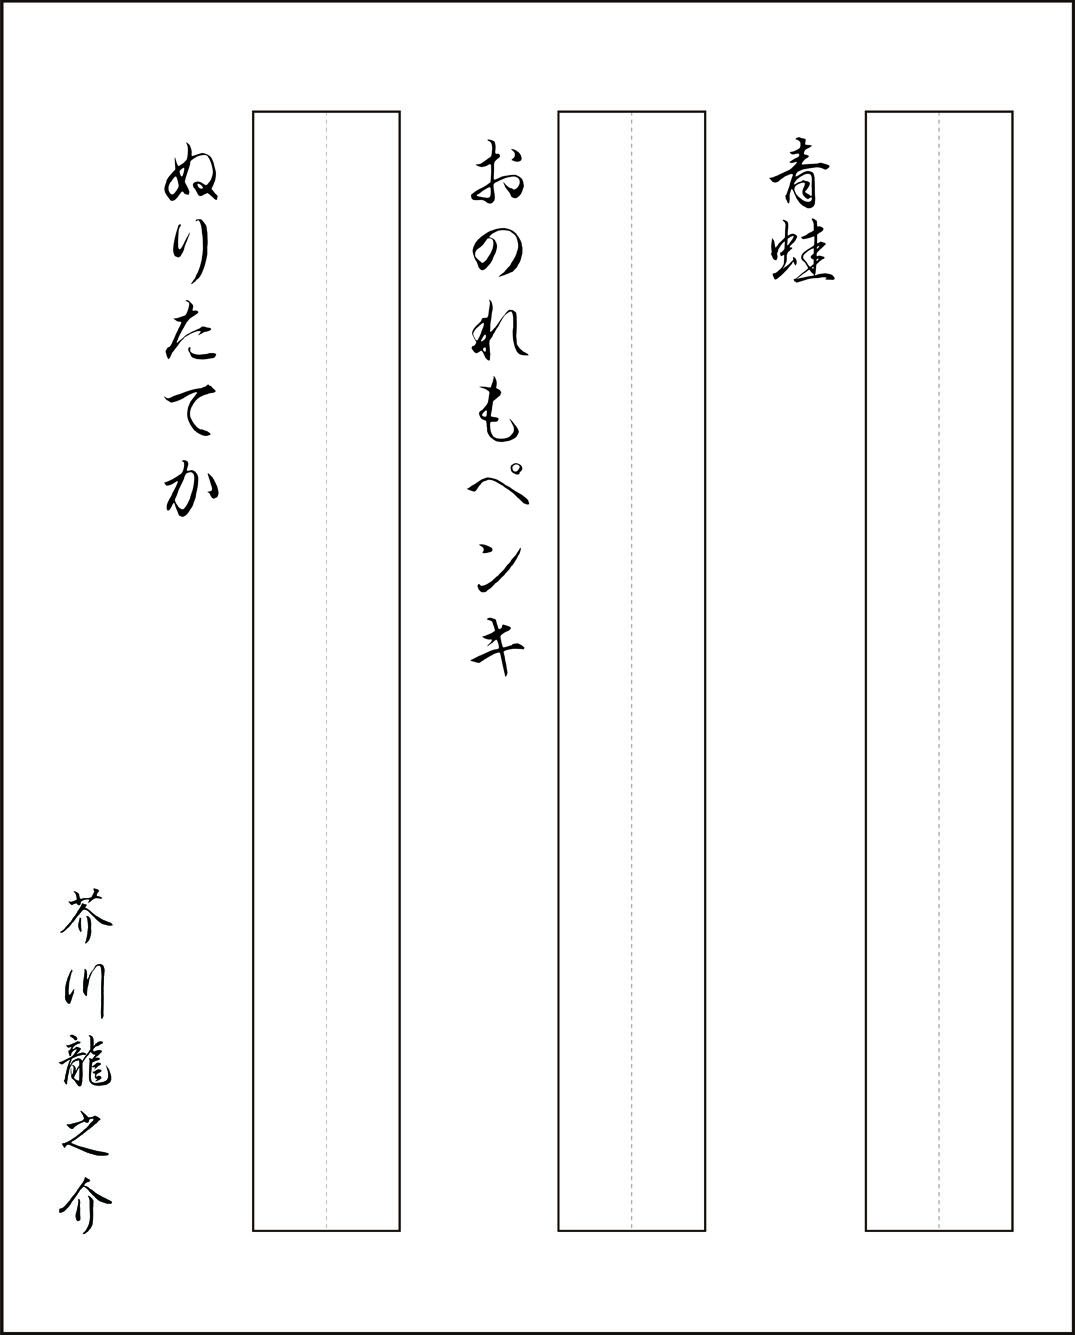 青蛙
おのれもペンキ
ぬりたてか
芥川龍之介